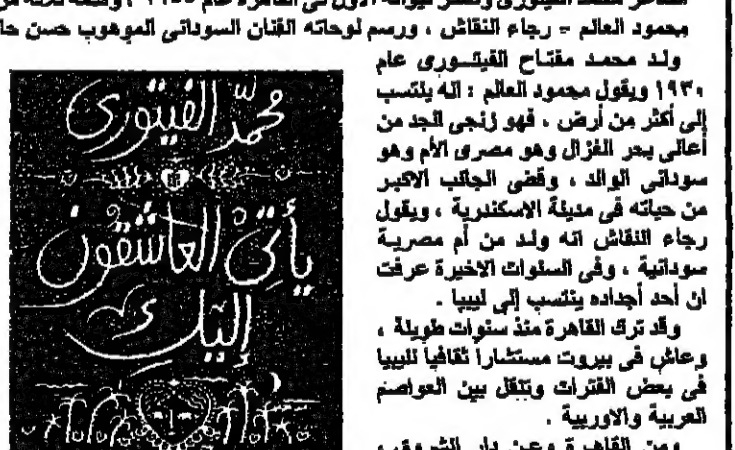 محمود العالم - رجاء النقاش ، ورسم لوحاته الفنان السودانى الموهوب حسن
ولد محمد مفتاح الفيتورى عام
١٩٣٠ ويقول محمود العالم : انه ينتسب
إلى أكثر من أرض ، فهو زنجى الجد من
أعالى بحر الغزال وهو مصرى الأم وهو
سودانى الوالد ، وقضى الجانب الاكبر
من حياته فى مدينة الاسكندرية ، ويقول
رجاء النقاش انه ولد من أم مصرية
سودانية ، وفى السنوات الاخيرة عرفت
ان أحد أجداده ينتسب إلى ليبيا .
وقد ترك القاهرة منذ سنوات طويلة ،
وعاش فى بيروت مستشارا ثقافيا لليبيا
فى بعض الفترات ويتنقل بين العواصم
العربية والاوربية .
ومن القاهرة وعن دار الشروق ،
محمد الفيتورى
يأتى العاشقون
إليك